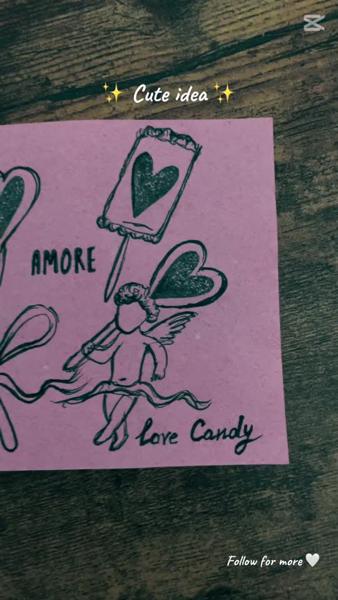 ✨ Cute idea ✨
AMORE
love Candy
Follow for more 🤍